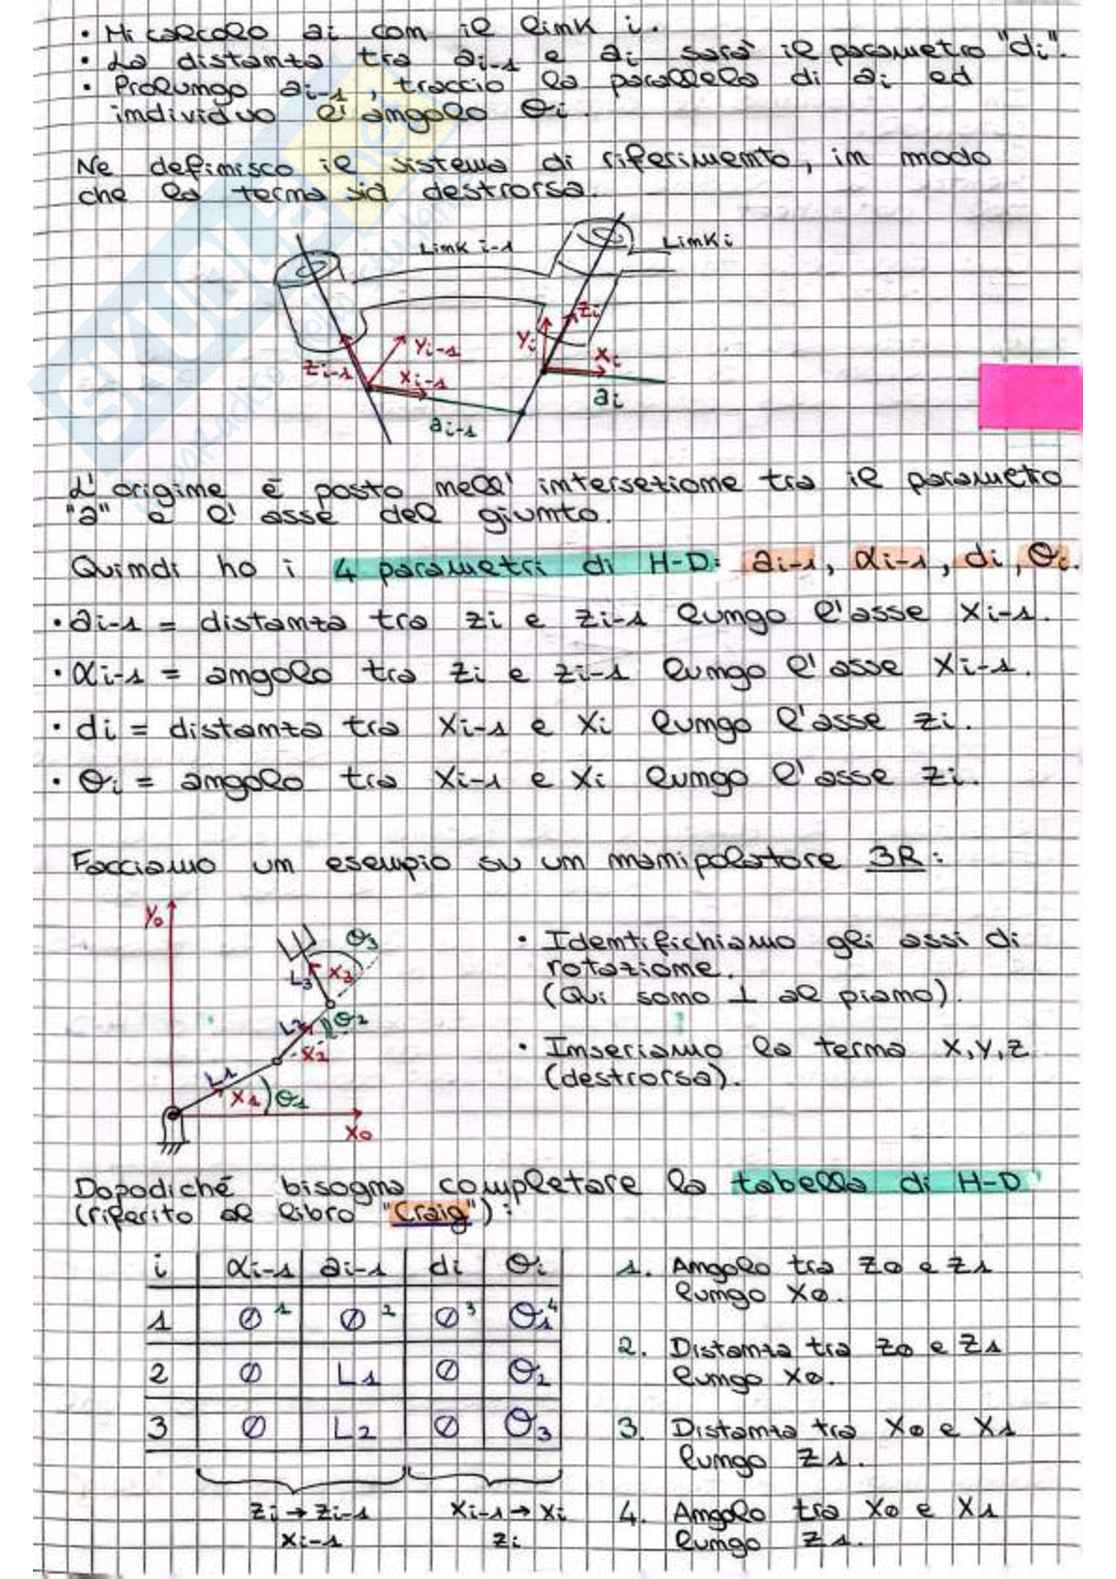 • Mi calcolo ai con il link i.
• La distanza tra ai-1 e ai sarà il parametro "di".
• Prolungo ai-1, traccio la parallela di ai ed
individuo l'angolo θi.
Ne definisco il sistema di riferimento, in modo
che la terna sia destrorsa.
Link i-1
Link i
zi
yi
yi-1
xi
zi-1
xi-1
ai
ai-1
L'origine è posto nell'intersezione tra il parametro
"a" e l'asse del giunto.
Quindi ho i 4 parametri di H-D: ai-1, αi-1, di, θi.
• ai-1 = distanza tra zi e zi-1 lungo l'asse xi-1.
• αi-1 = angolo tra zi e zi-1 lungo l'asse xi-1.
• di = distanza tra xi-1 e xi lungo l'asse zi.
• θi = angolo tra xi-1 e xi lungo l'asse zi.
Facciamo un esempio su un manipolatore 3R:
y0
θ3
L3 x3
L2 θ2
x2
L1
x1 θ1
x0
• Identifichiamo gli assi di
rotazione.
(Qui sono ⊥ al piano).
• Inseriamo la terna x,y,z
(destrorsa).
Dopodiché bisogna completare la tabella di H-D
(riferito al libro "Craig"):
i αi-1 ai-1 di θi
1 ∅ 1 ∅ 2 ∅ 3 θ1 4
2 ∅ L1 ∅ θ2
3 ∅ L2 ∅ θ3
zi → zi-1 xi-1 → xi
xi-1 zi
1. Angolo tra z0 e z1
lungo x0.
2. Distanza tra z0 e z1
lungo x0.
3. Distanza tra x0 e x1
lungo z1.
4. Angolo tra x0 e x1
lungo z1.